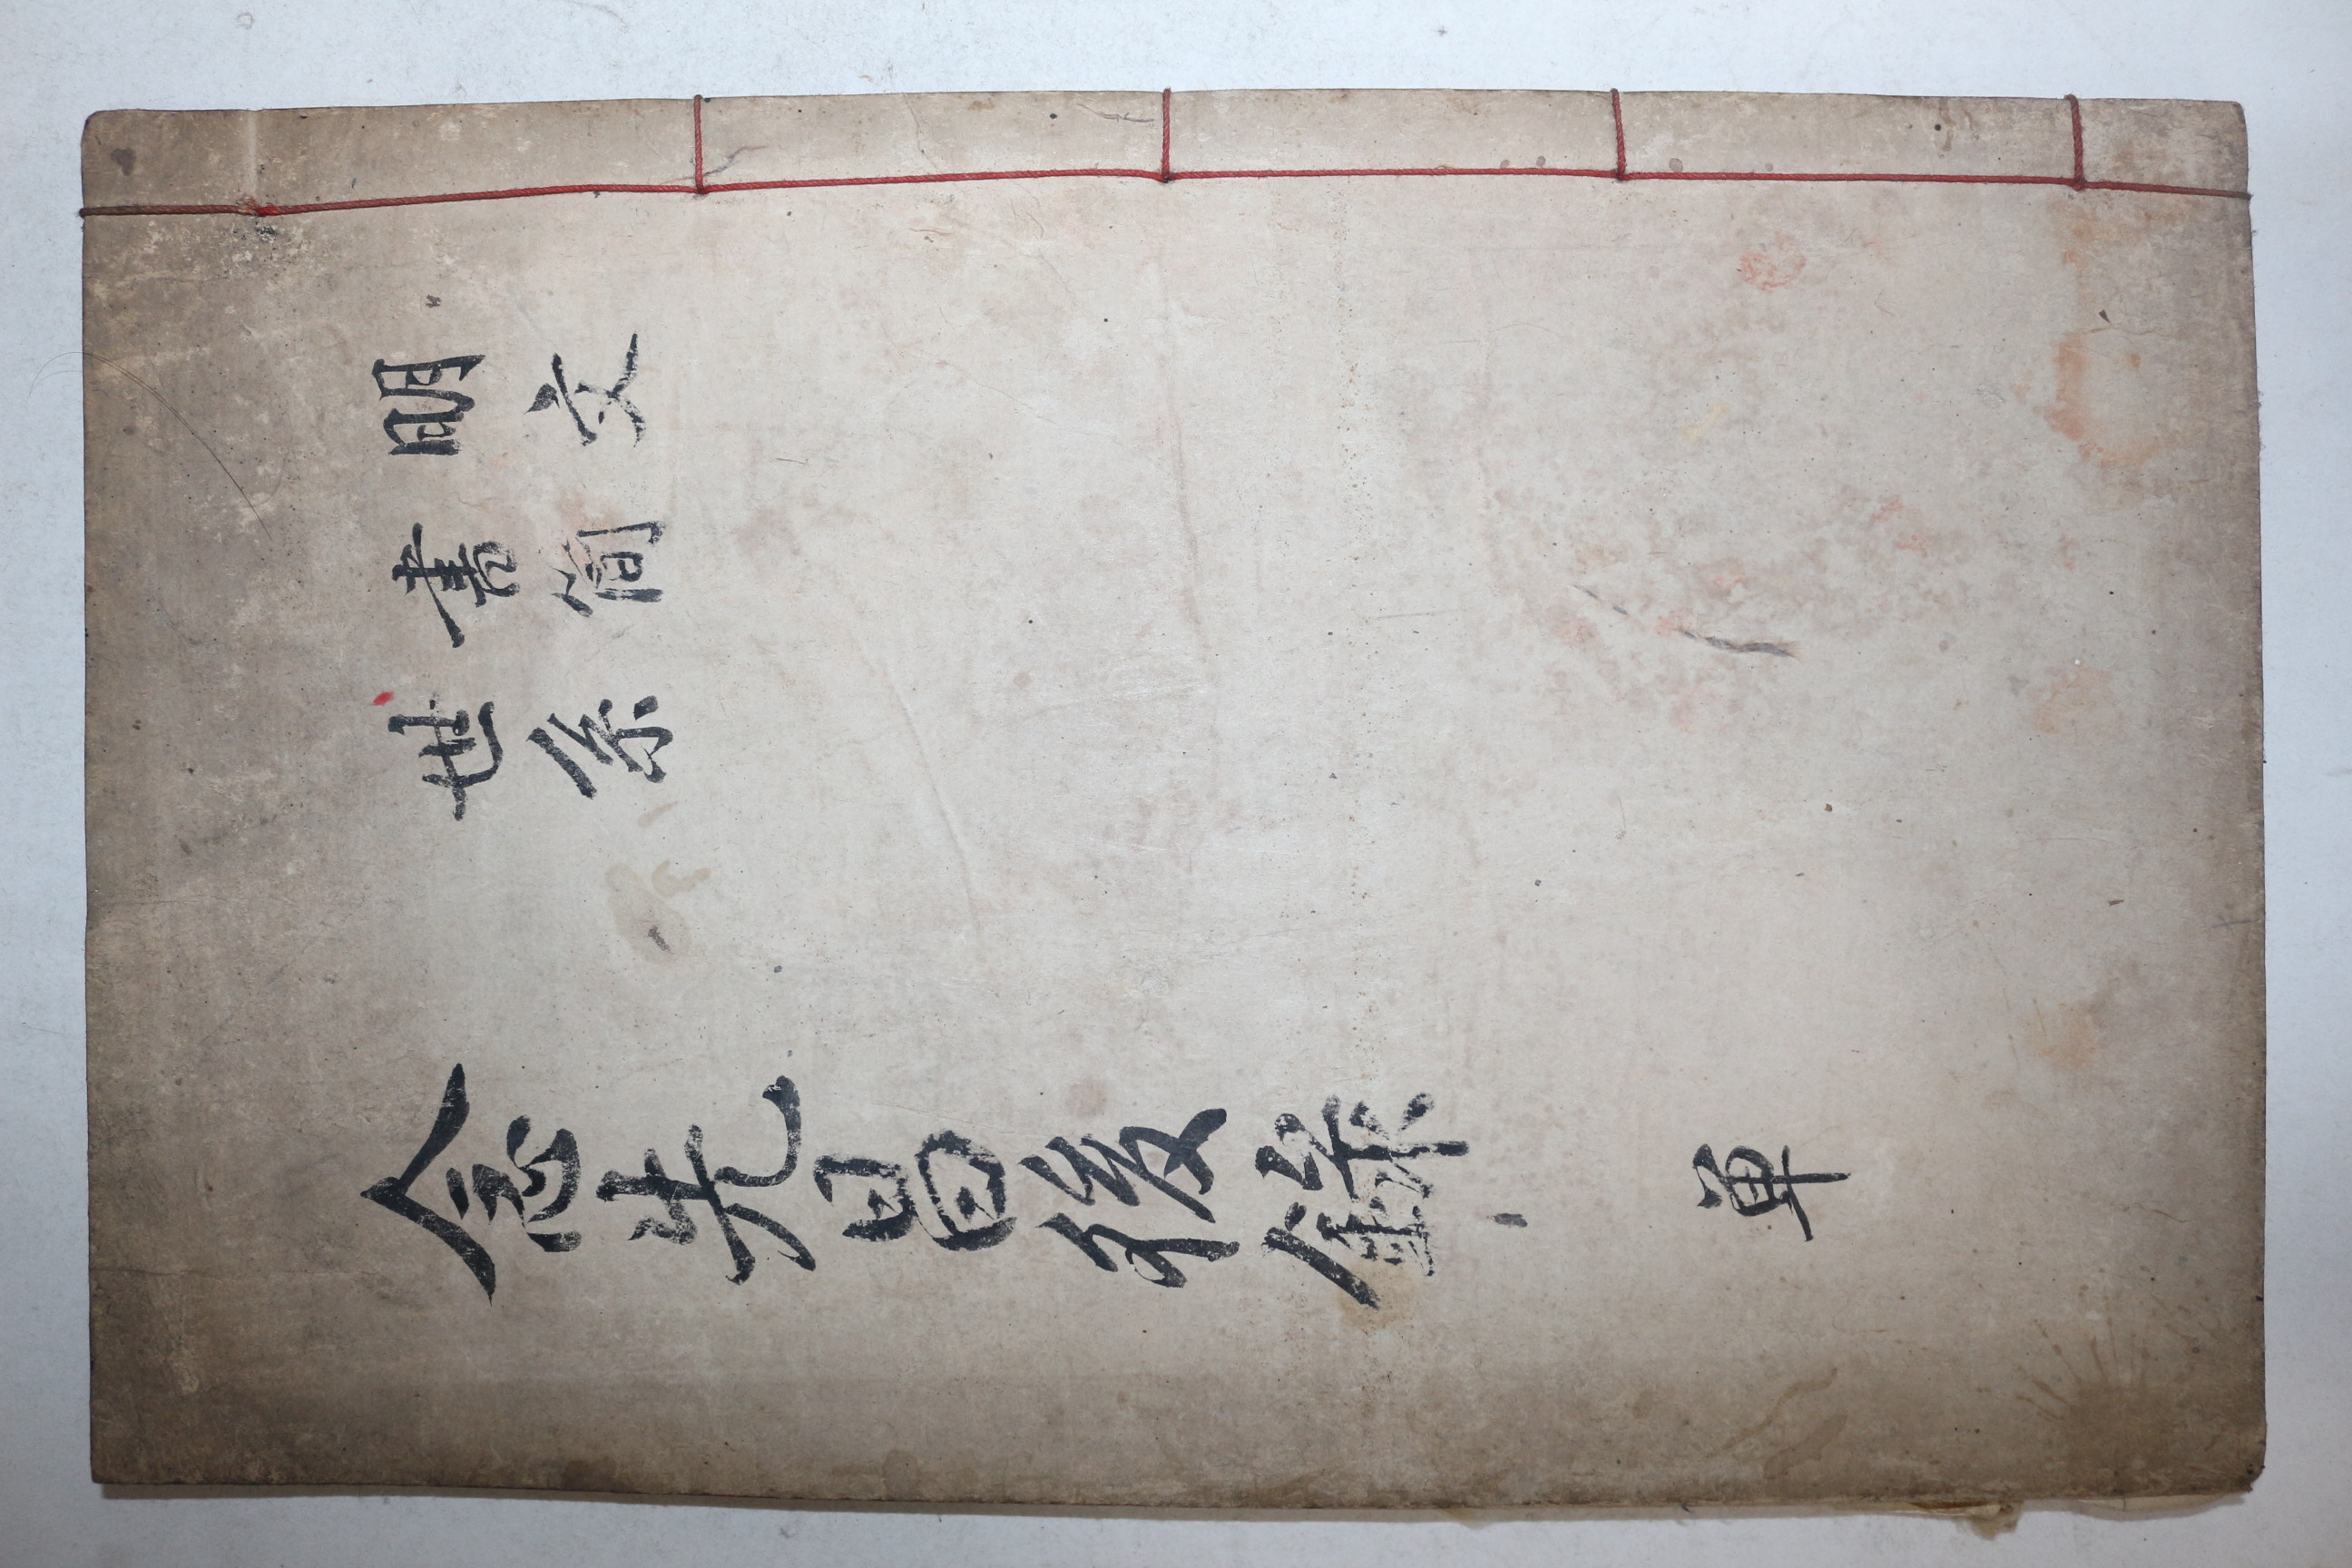 明文
書簡
世系
念先昌後錄
单